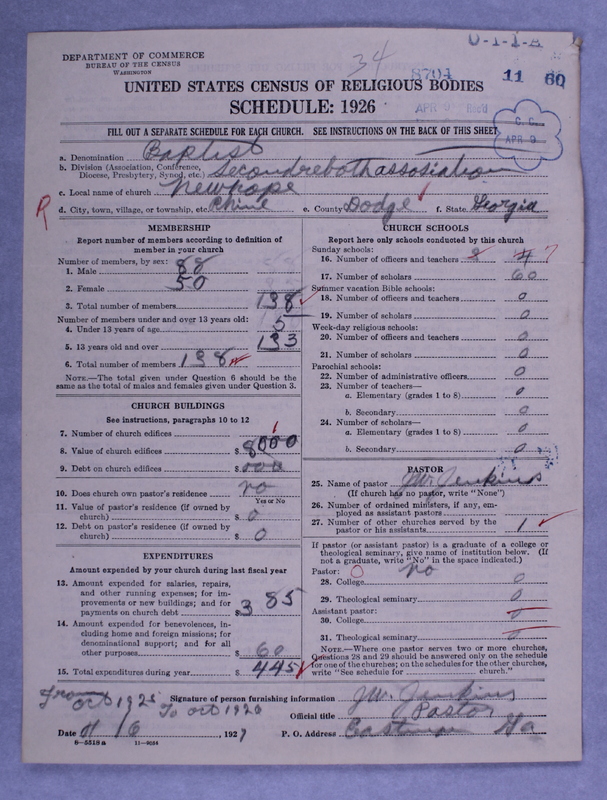 34
U-1-1-A
DEPARTMENT OF COMMERCE
BUREAU OF THE CENSUS
WASHINGTON
8704
11 60
UNITED STATES CENSUS OF RELIGIOUS BODIES
APR 9
SCHEDULE: 1926
C. C.
APR 9
FILL OUT A SEPARATE SCHEDULE FOR EACH CHURCH. SEE INSTRUCTIONS ON THE BACK OF THIS SHEET
a. Denomination Baptist
b. Division (Association, Conference, Diocese, Presbytery, Synod, etc.) Secondreboth assosiation
c. Local name of church Newhope
R d. City, town, village, or township, etc. Chine e. County Dodge f. State Georgia
MEMBERSHIP
Report number of members according to definition of
member in your church
Number of members, by sex:
1. Male 88
2. Female 50
3. Total number of members 138
Number of members under and over 13 years old:
4. Under 13 years of age 5
5. 13 years old and over 133
6. Total number of members 138
NOTE.—The total given under Question 6 should be
same as the total of males and females given under Question 3.
CHURCH BUILDINGS
See instructions, paragraphs 10 to 12
7. Number of church edifices 1
8. Value of church edifices $ 8000
9. Debt on church edifices $ 000
10. Does church own pastor's residence no
Yes or No
11. Value of pastor's residence (if owned by
church) $ 0
12. Debt on pastor's residence (if owned by
church) $ 0
EXPENDITURES
Amount expended by your church during last fiscal year
13. Amount expended for salaries, repairs,
and other running expenses; for im-
provements or new buildings; and for
payments on church debt $ 385
14. Amount expended for benevolences, in-
cluding home and foreign missions; for
denominational support; and for all
other purposes $ 60
15. Total expenditures during year $ 445
CHURCH SCHOOLS
Report here only schools conducted by this church
Sunday schools:
16. Number of officers and teachers 8 7
17. Number of scholars 60
Summer vacation Bible schools:
18. Number of officers and teachers 0
19. Number of scholars 0
Week-day religious schools:
20. Number of officers and teachers 0
21. Number of scholars 0
Parochial schools:
22. Number of administrative officers 0
23. Number of teachers—
a. Elementary (grades 1 to 8) 0
b. Secondary 0
24. Number of scholars—
a. Elementary (grades 1 to 8) 0
b. Secondary 0
PASTOR
25. Name of pastor J.W. Jenkins
(If church has no pastor, write "None")
26. Number of ordained ministers, if any, em-
ployed as assistant pastors
27. Number of other churches served by the
pastor or his assistants 1
If pastor (or assistant pastor) is a graduate of a college or
theological seminary, give name of institution below. (If
not a graduate, write "No" in the space indicated.)
Pastor: 0 no
28. College 0
29. Theological seminary 0
Assistant pastor:
30. College 0
31. Theological seminary 0
NOTE.—Where one pastor serves two or more churches,
Questions 28 and 29 should be answered only on the schedule
for one of the churches; on the schedules for the other churches,
write "See schedule for church."
From oct 1925
To oct 1926
Signature of person furnishing information J.W. Jenkins
Official title Pastor
Date 4/6, 1927 P. O. Address Eastman Ga
8—5518a 11—9056